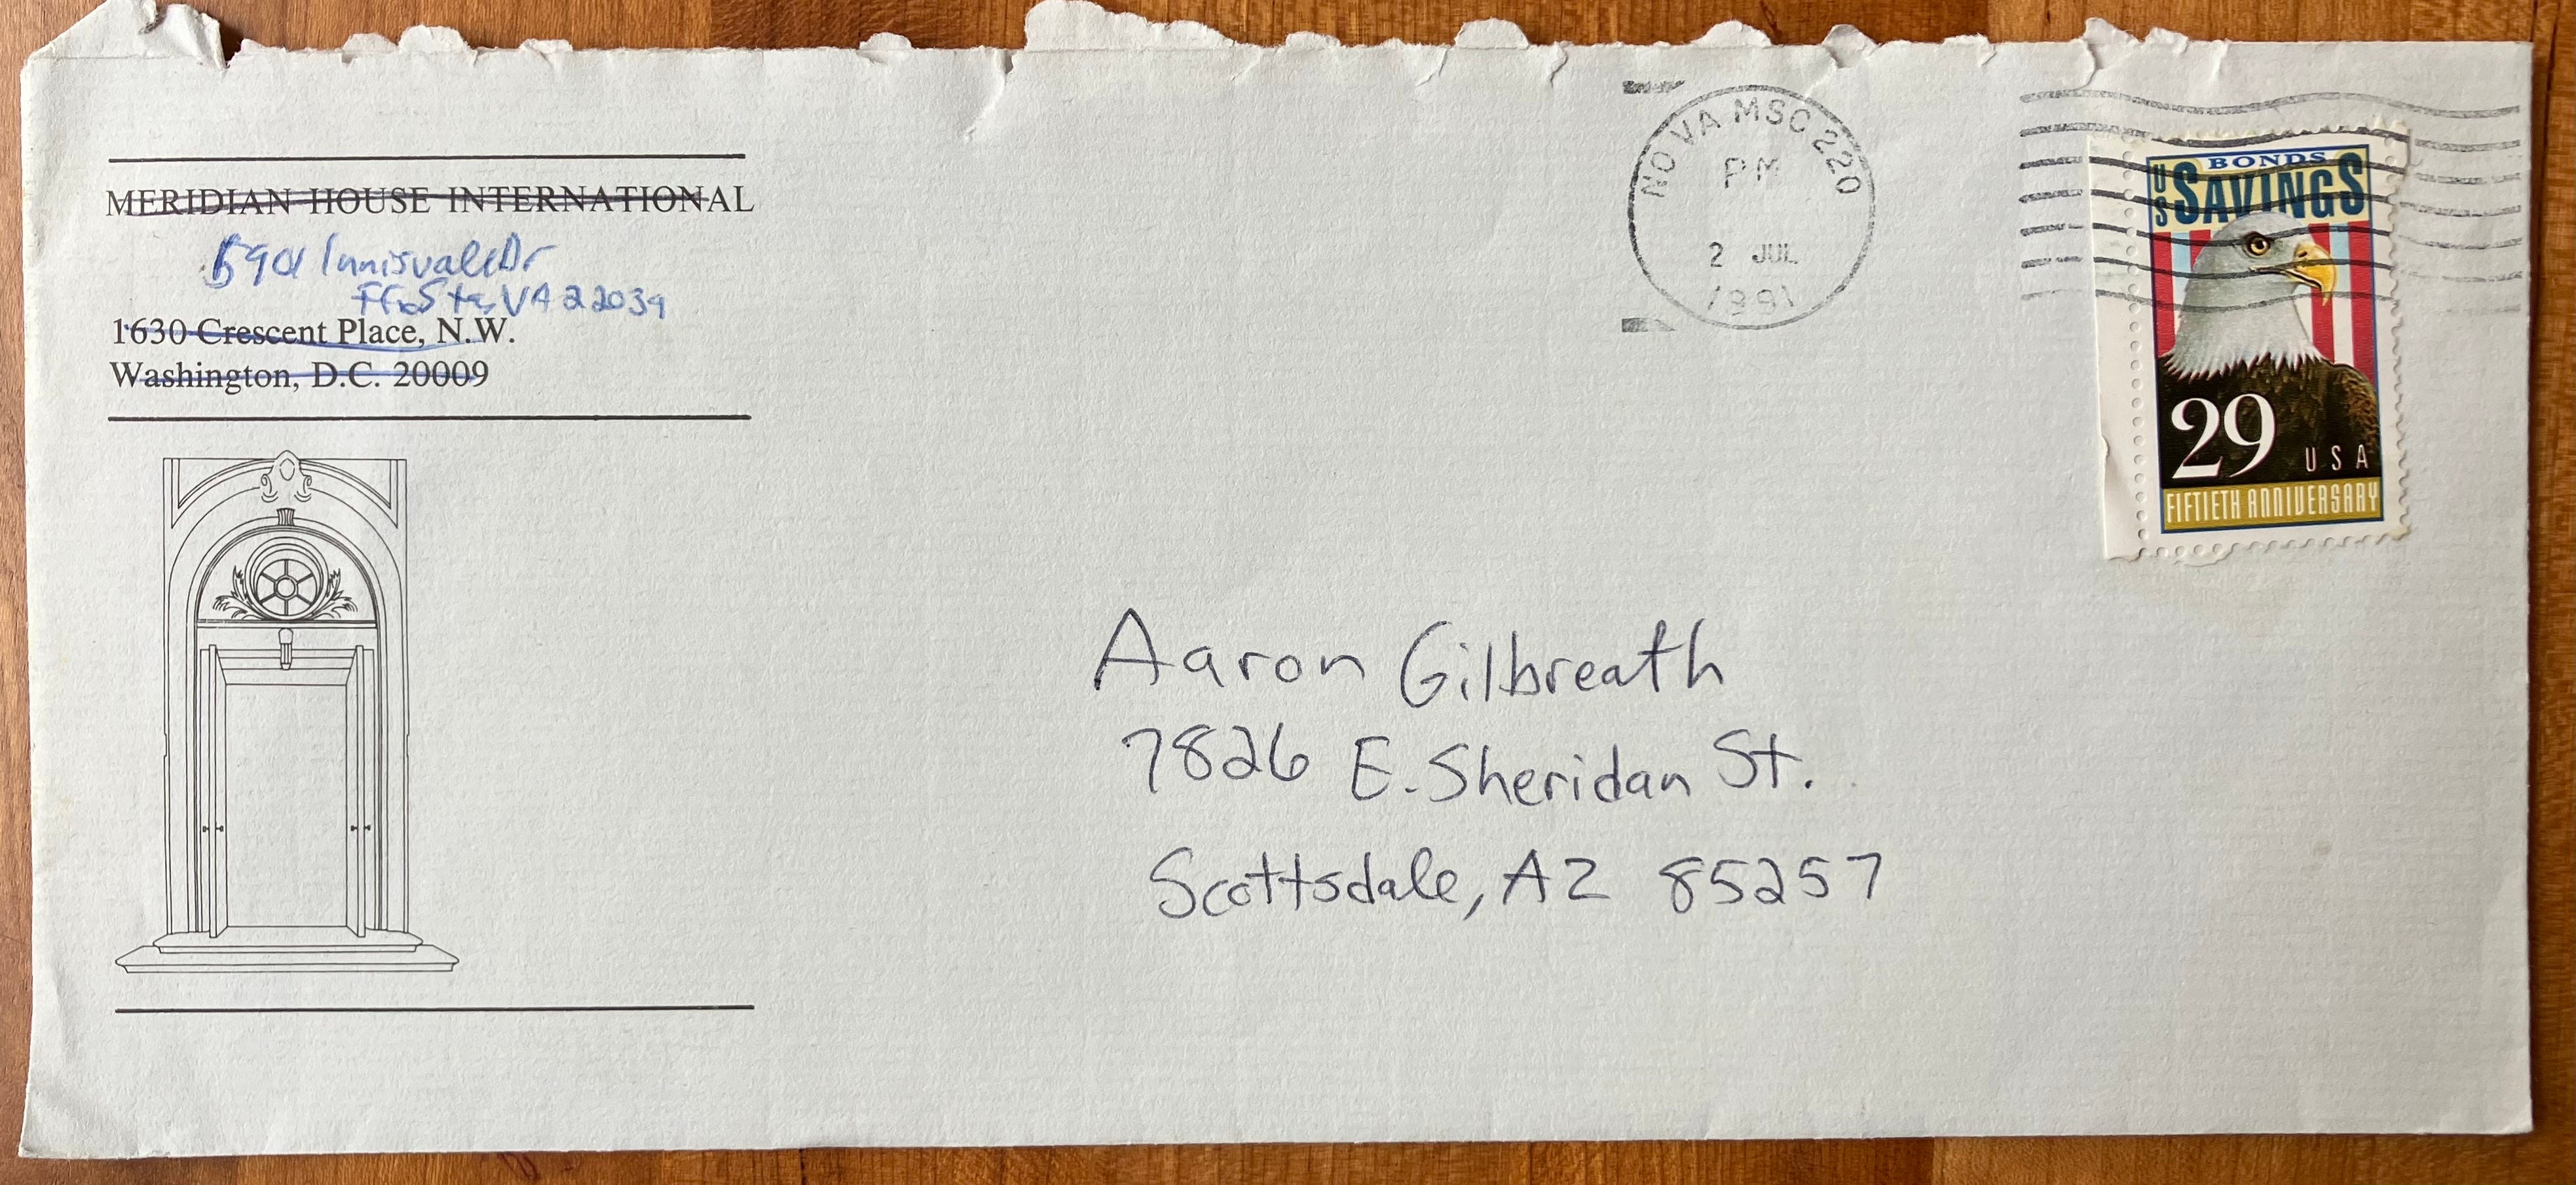 MERIDIAN HOUSE INTERNATIONAL
5901 Innisvale Dr
Ffx Sta, VA 22039
1630 Crescent Place, N.W.
Washington, D.C. 20009
NO VA MSC 220
PM
2 JUL
1991
US SAVINGS BONDS
29 USA
FIFTIETH ANNIVERSARY
Aaron Gilbreath
7826 E. Sheridan St.
Scottsdale, AZ 85257